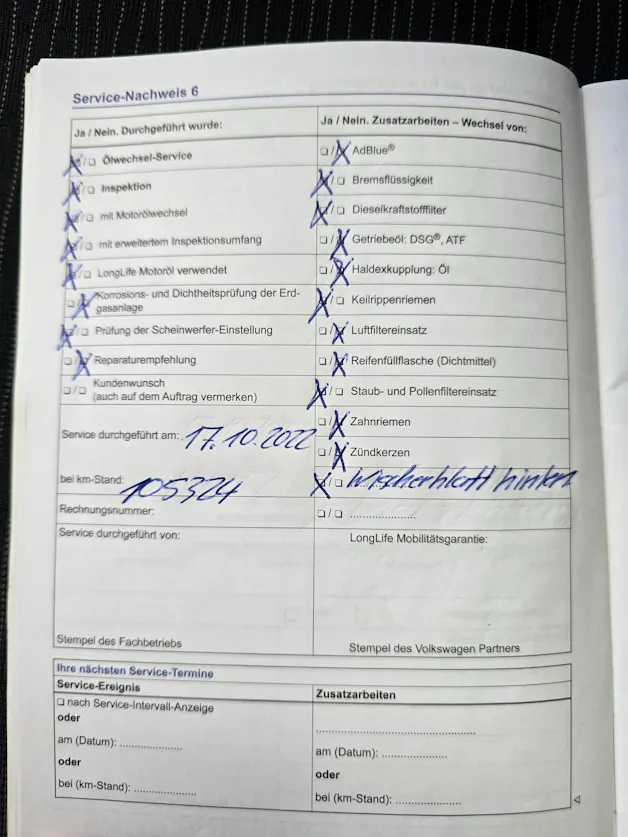 Service-Nachweis 6
Ja / Nein. Durchgeführt wurde:
☒/☐ Ölwechsel-Service
☒/☐ Inspektion
☒/☐ mit Motorölwechsel
☒/☐ mit erweitertem Inspektionsumfang
☒/☐ LongLife Motoröl verwendet
☐/☒ Korrosions- und Dichtheitsprüfung der Erd-
gasanlage
☒/☐ Prüfung der Scheinwerfer-Einstellung
☐/☒ Reparaturempfehlung
☐/☐ Kundenwunsch
(auch auf dem Auftrag vermerken)
Service durchgeführt am: 17.10.2022
bei km-Stand: 105324
Rechnungsnummer:
Service durchgeführt von:
Stempel des Fachbetriebs
Ja / Nein. Zusatzarbeiten – Wechsel von:
☐/☒ AdBlue®
☒/☐ Bremsflüssigkeit
☒/☐ Dieselkraftstofffilter
☐/☒ Getriebeöl: DSG®, ATF
☐/☒ Haldexkupplung: Öl
☒/☐ Keilrippenriemen
☐/☒ Luftfiltereinsatz
☐/☒ Reifenfüllflasche (Dichtmittel)
☒/☐ Staub- und Pollenfiltereinsatz
☐/☒ Zahnriemen
☐/☒ Zündkerzen
☒/☐ Wischerblatt hinten
☐/☐ ....................
LongLife Mobilitätsgarantie:
Stempel des Volkswagen Partners
Ihre nächsten Service-Termine
Service-Ereignis
☐ nach Service-Intervall-Anzeige
oder
am (Datum): ....................
oder
bei (km-Stand): ....................
Zusatzarbeiten
..................................................
am (Datum): ....................
oder
bei (km-Stand): ....................